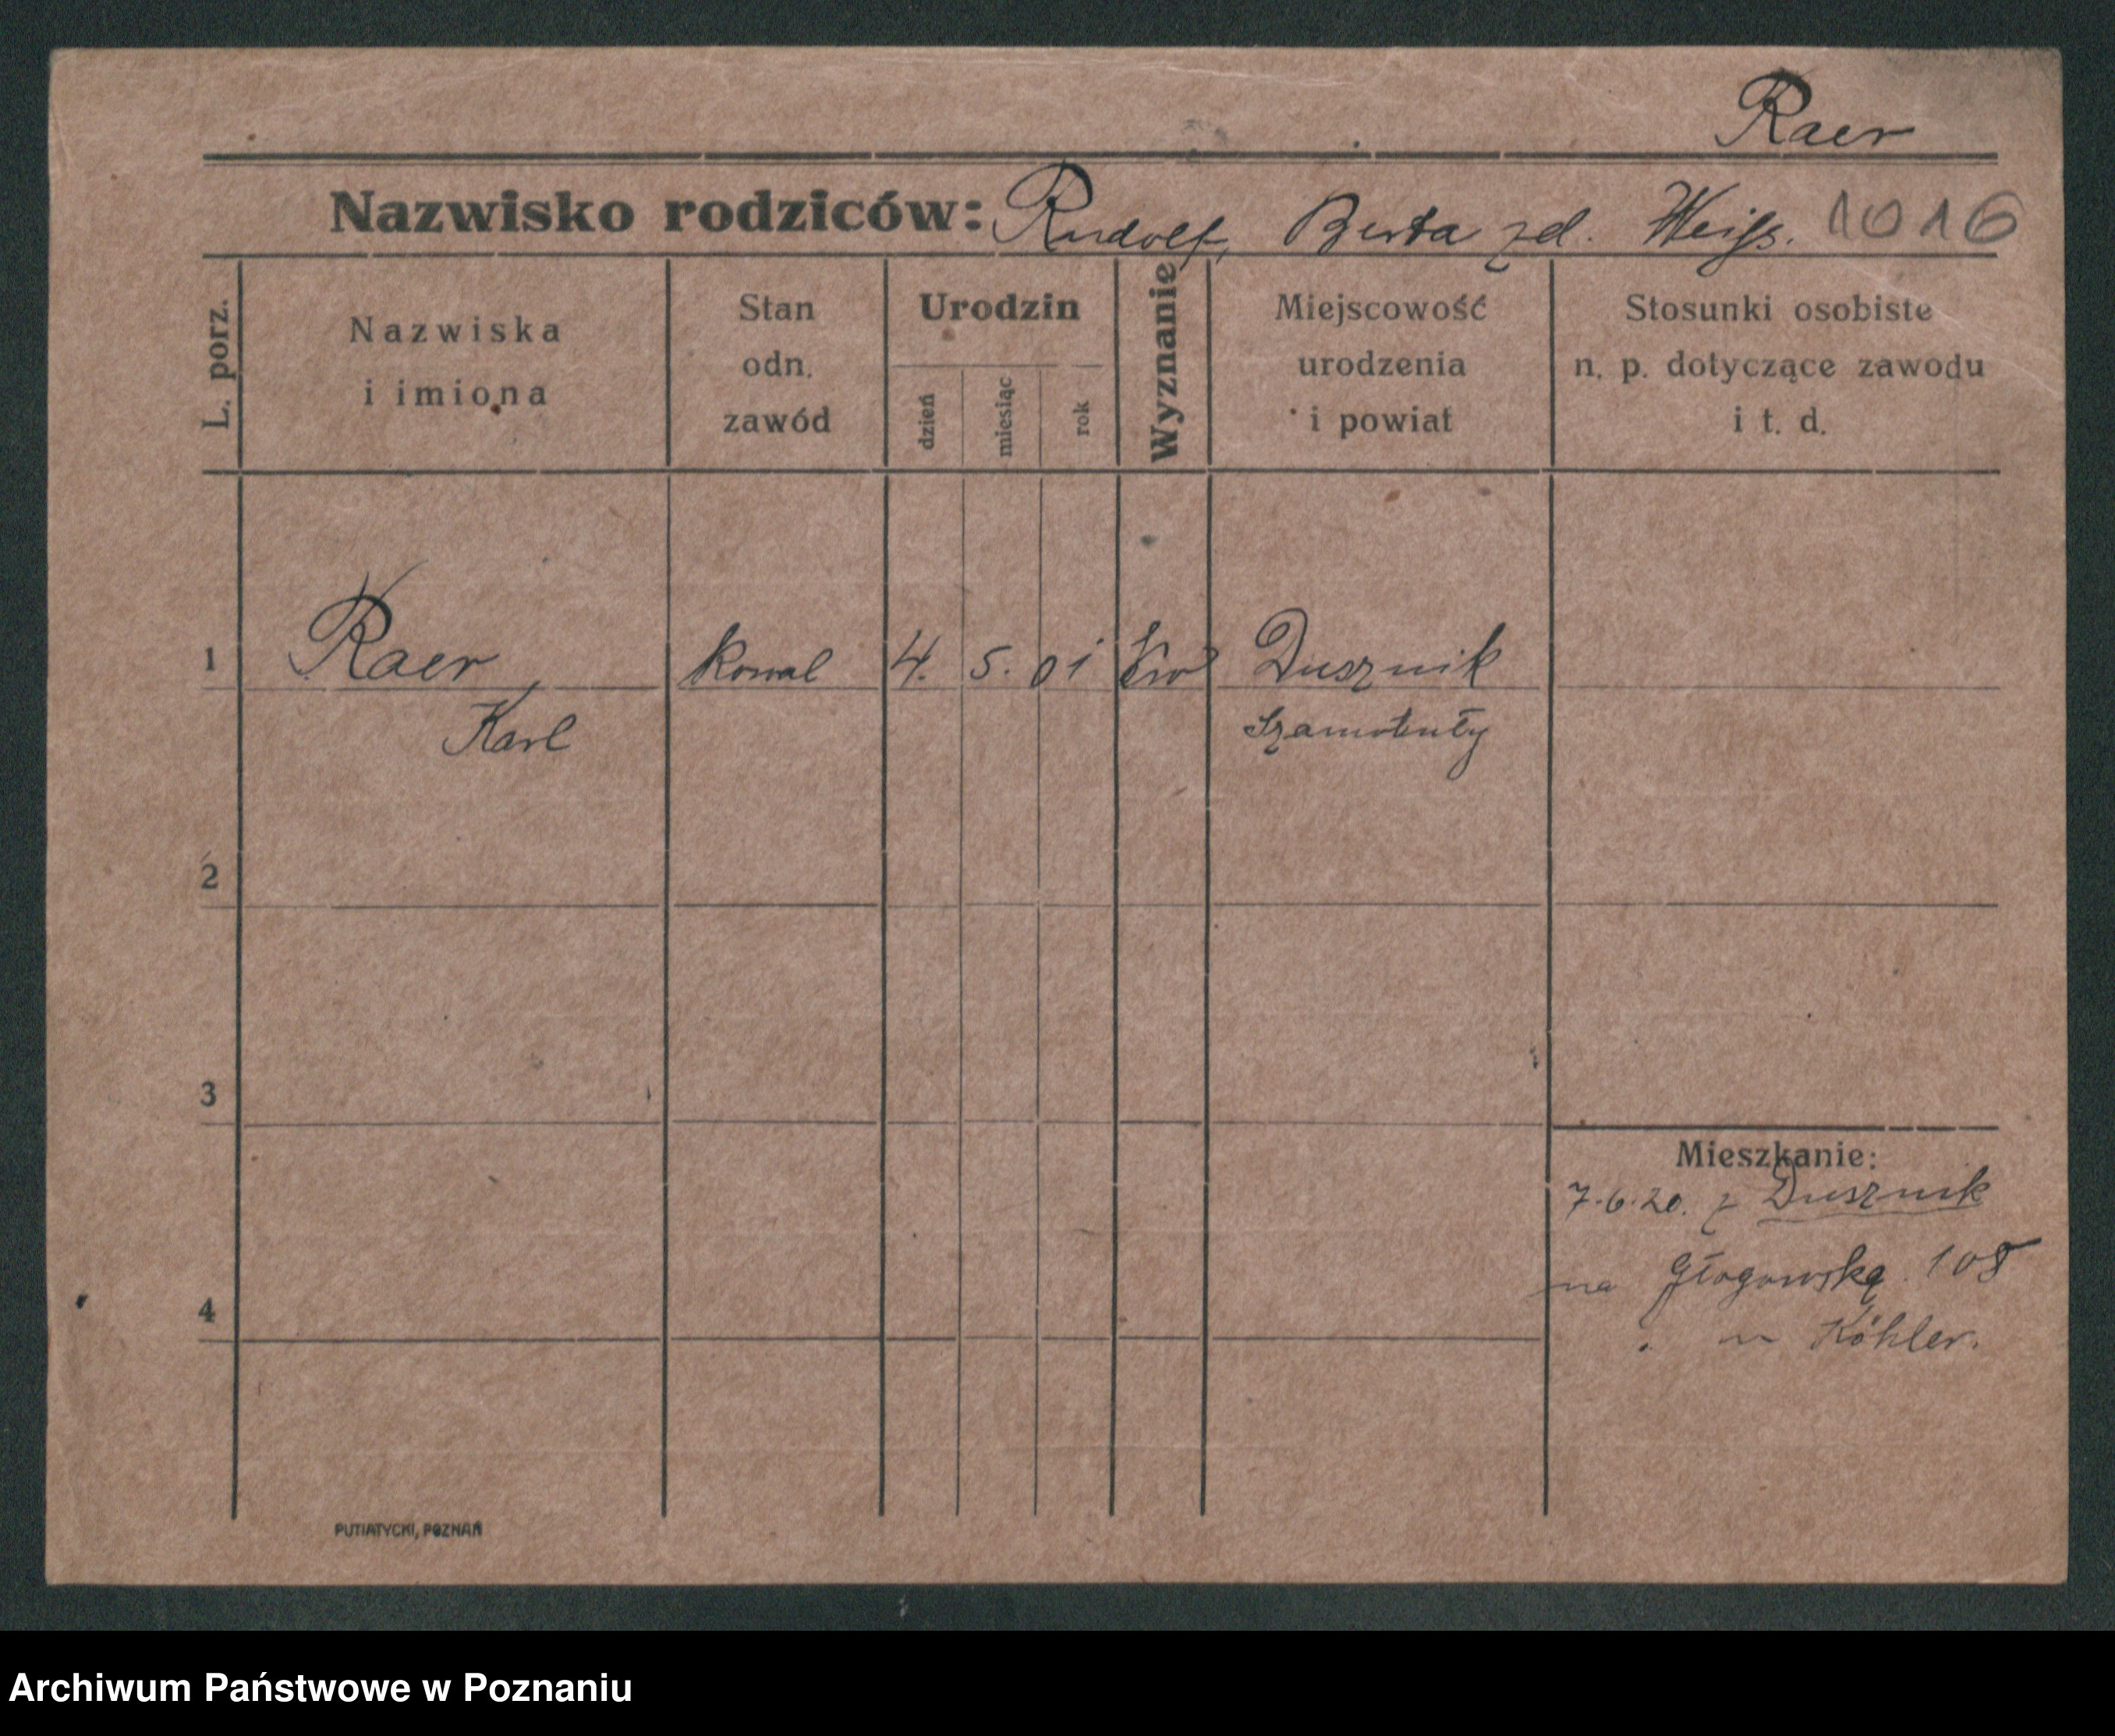 Raer
Nazwisko rodziców: Rudolf, Berta zd. Weiss. 1016
L. porz.
Nazwiska
i imiona
Stan
odn.
zawód
Urodzin
dzień
miesiąc
rok
Wyznanie
Miejscowość
urodzenia
i powiat
Stosunki osobiste
n. p. dotyczące zawodu
i t. d.
1 Raer kowal 4. 5. 01 Dusznik
Karl Szamotuły
2
3
Mieszkanie:
7.6.20. z Dusznik
na Głogowską 108
u Köhler.
4
PUTIATYCKI, POZNAŃ
Archiwum Państwowe w Poznaniu